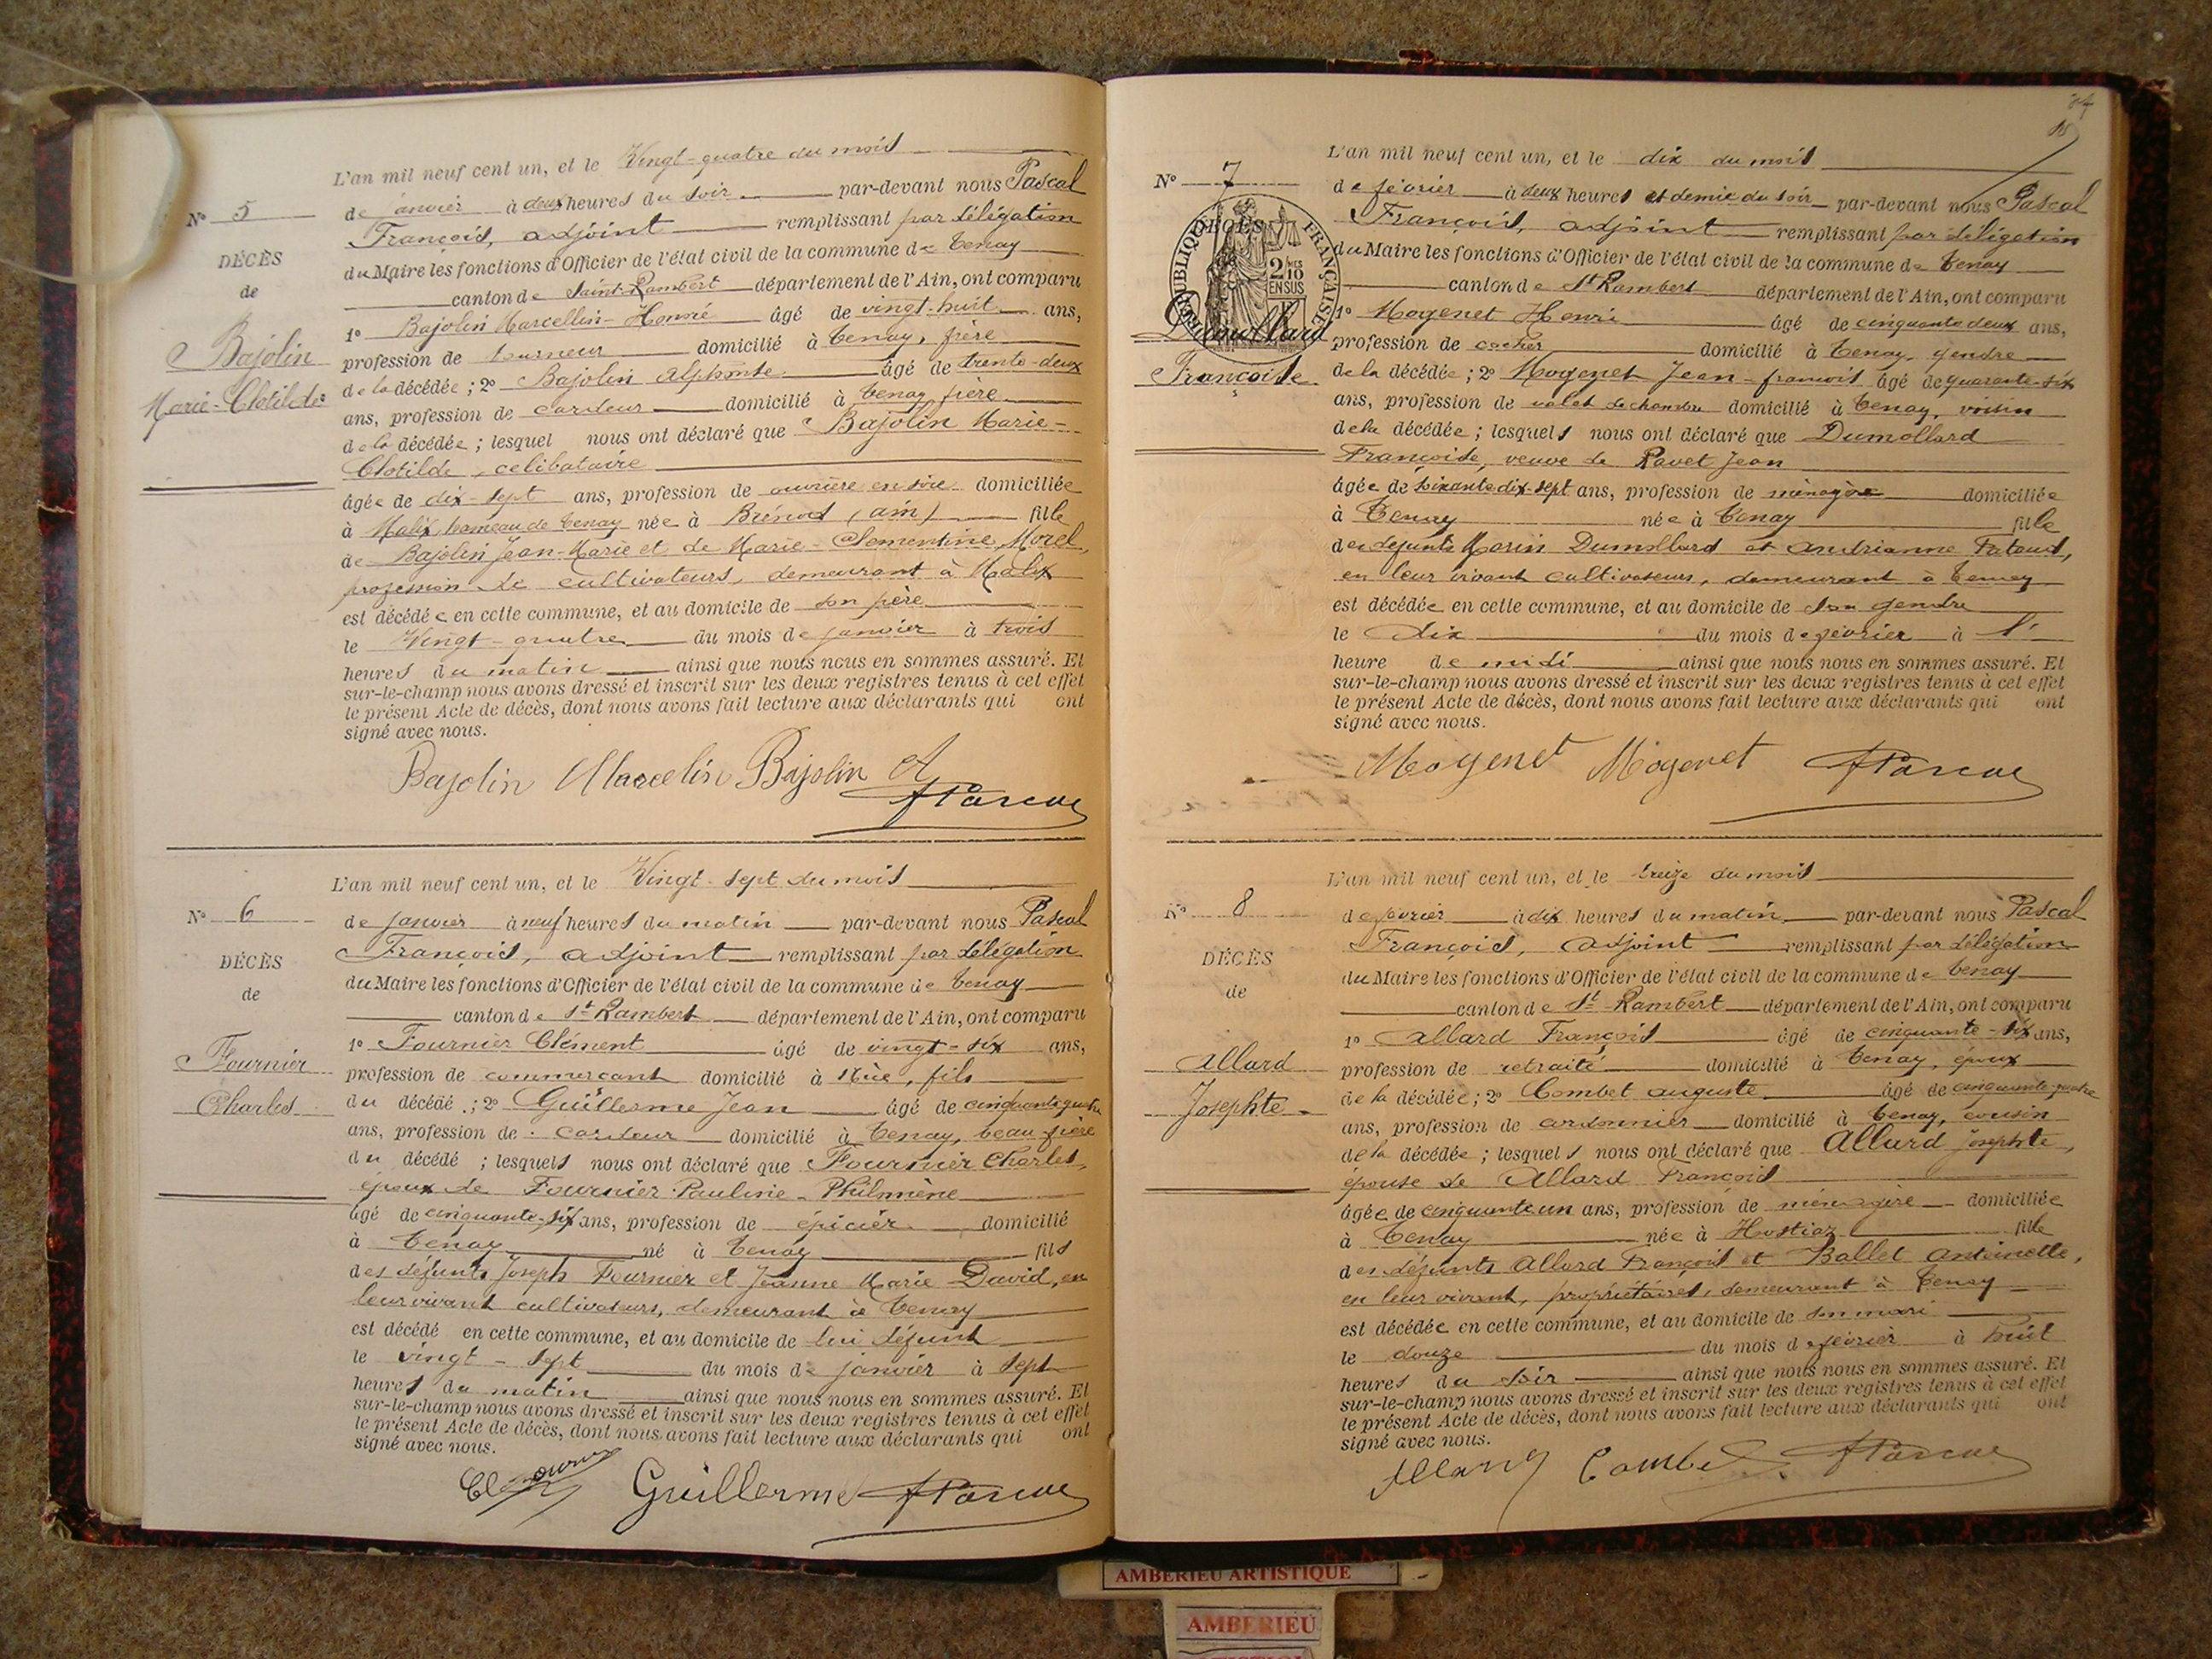 L'an mil neuf cent un, et le Vingt-quatre du mois
N° 5
de janvier à deux heures du soir par-devant nous Pascal
François, adjoint remplissant par délégation
DÉCÈS
du Maire les fonctions d'Officier de l'état civil de la commune de Tenay
de
canton de Saint-Rambert département de l'Ain, ont comparu
1° Bajolin Marcellin-Honoré âgé de vingt-huit ans,
Bajolin
profession de tourneur domicilié à Tenay, frère
Marie-Clotilde
de la décédée ; 2° Bajolin Alphonse âgé de trente-deux
ans, profession de cardeur domicilié à Tenay, frère
de la décédée ; lesquel nous ont déclaré que Bajolin Marie-
Clotilde, celibataire
âgée de dix-sept ans, profession de ouvrière en soie domiciliée
à Malix, hameau de Tenay née à Brénod (ain) fille
de Bajolin Jean-Marie et de Marie-Clementine Morel,
profession de cultivateurs, demeurant à Malix
est décédée en cette commune, et au domicile de son père
le Vingt-quatre du mois de janvier à trois
heures du matin ainsi que nous nous en sommes assuré. Et
sur-le-champ nous avons dressé et inscrit sur les deux registres tenus à cet effet
le présent Acte de décès, dont nous avons fait lecture aux déclarants qui ont
signé avec nous.
Bajolin Marcelin Bajolin A FPascal
L'an mil neuf cent un, et le Vingt-sept du mois
N° 6
de janvier à neuf heures du matin par-devant nous Pascal
François, adjoint remplissant par délégation
DÉCÈS
du Maire les fonctions d'Officier de l'état civil de la commune de Tenay
de
canton de St-Rambert département de l'Ain, ont comparu
1° Fournier Clément âgé de vingt-six ans,
Fournier
profession de commerçant domicilié à , fils
Charles
du décédé ; 2° Guillerme Jean âgé de cinquante quatre
ans, profession de cardeur domicilié à Tenay, beau-frère
du décédé ; lesquels nous ont déclaré que Fournier Charles,
époux de Fournier Pauline-Philomène
âgé de cinquante-six ans, profession de épicier domicilié
à Tenay né à Tenay fils
des défunts Joseph Fournier et Jeanne Marie David, en
leur vivant cultivateurs, demeurant à Tenay
est décédé en cette commune, et au domicile de lui défunt
le vingt-sept du mois de janvier à sept
heures du matin ainsi que nous nous en sommes assuré. Et
sur-le-champ nous avons dressé et inscrit sur les deux registres tenus à cet effet
le présent Acte de décès, dont nous avons fait lecture aux déclarants qui ont
signé avec nous.
Guillerme FPascal
L'an mil neuf cent un, et le dix du mois
N° 7
de février à deux heures et demie du soir par-devant nous Pascal
François, adjoint remplissant par délégation
DÉCÈS
RÉPUBLIQUE FRANÇAISE
2 MES 10 EN SUS
du Maire les fonctions d'Officier de l'état civil de la commune de Tenay
canton de St Rambert département de l'Ain, ont comparu
Dumollard
1° Mogenet Henri âgé de cinquante deux ans,
profession de cocher domicilié à Tenay, gendre
Françoise
de la décédée ; 2° Mogenet Jean-françois âgé de quarante-six
ans, profession de valet de chambre domicilié à Tenay, voisin
de la décédée ; lesquels nous ont déclaré que Dumollard
Françoise, veuve de Ravet Jean
âgée de soixante dix-sept ans, profession de ménagère domiciliée
à Tenay née à Tenay fille
des défunts Marin Dumollard et andrianne
en leur vivant cultivateurs, demeurant à Tenay
est décédée en cette commune, et au domicile de son gendre
le dix du mois de février à l'
heure de midi ainsi que nous nous en sommes assuré. Et
sur-le-champ nous avons dressé et inscrit sur les deux registres tenus à cet effet
le présent Acte de décès, dont nous avons fait lecture aux déclarants qui ont
signé avec nous.
Mogenet Mogenet FPascal
L'an mil neuf cent un, et le treize du mois
N° 8
de février à dix heures du matin par-devant nous Pascal
François, adjoint remplissant par délégation
DÉCÈS
du Maire les fonctions d'Officier de l'état civil de la commune de Tenay
de
canton de St-Rambert département de l'Ain, ont comparu
1° Allard François âgé de cinquante-six ans,
Allard
profession de retraité domicilié à Tenay, époux
Josephte
de la décédée ; 2° Combet auguste âgé de cinquante-quatre
ans, profession de cordonnier domicilié à Tenay, cousin
de la décédée ; lesquels nous ont déclaré que Allard Josephte,
épouse de Allard François
âgée de cinquante un ans, profession de ménagère domiciliée
à Tenay née à Hostiaz fille
des défunts Allard François et Ballet Antoinette,
en leur vivant, propriétaires, demeurant à Tenay
est décédée en cette commune, et au domicile de son mari
le douze du mois de février à huit
heures du soir ainsi que nous nous en sommes assuré. Et
sur-le-champ nous avons dressé et inscrit sur les deux registres tenus à cet effet
le présent Acte de décès, dont nous avons fait lecture aux déclarants qui ont
signé avec nous.
Allard Combet FPascal
AMBERIEU ARTISTIQUE
AMBERIEU